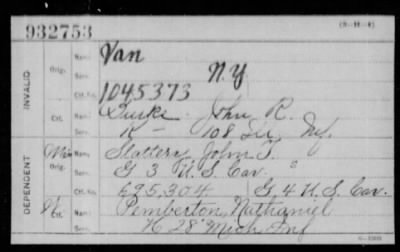 932753 (3-H-4)
Name Van
INVALID Orig. Serv. N.Y.
Ctf. No. 1045373
Name John R.
Ctf. Serv. K - 108 Inf.
DEPENDENT Min Name Slattery, John T.
Orig. Serv. G 3 U.S. Cav. "
Ctf. No. 695,304 G 4 U.S. Cav.
W Name Pemberton, Nathaniel
Ctf. Serv. K 28" Mich. Inf